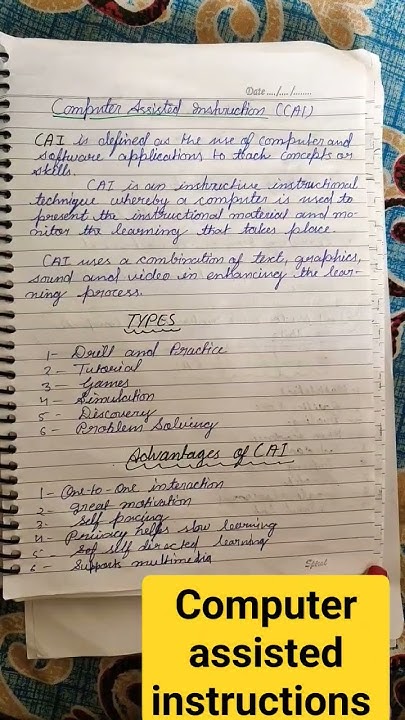 Date..../..../........
Computer Assisted Instruction (CAI)
CAI is defined as the use of computer and
software applications to teach concepts or
skills.
CAI is an instructive instructional
technique whereby a computer is used to
present the instructional material and mo-
nitor the learning that takes place.
CAI uses a combination of text, graphics,
sound and video in enhancing the lear-
ning process.
TYPES
1- Drill and Practice
2- Tutorial
3- Games
4- Simulation
5- Discovery
6- Problem Solving
Advantages of CAI
1- One-to-One interaction
2- great motivation
3- Self pacing
4- Privacy helps slow learning
5- Sef self directed learning
6- Supports multimedia
Special
Computer
assisted
instructions